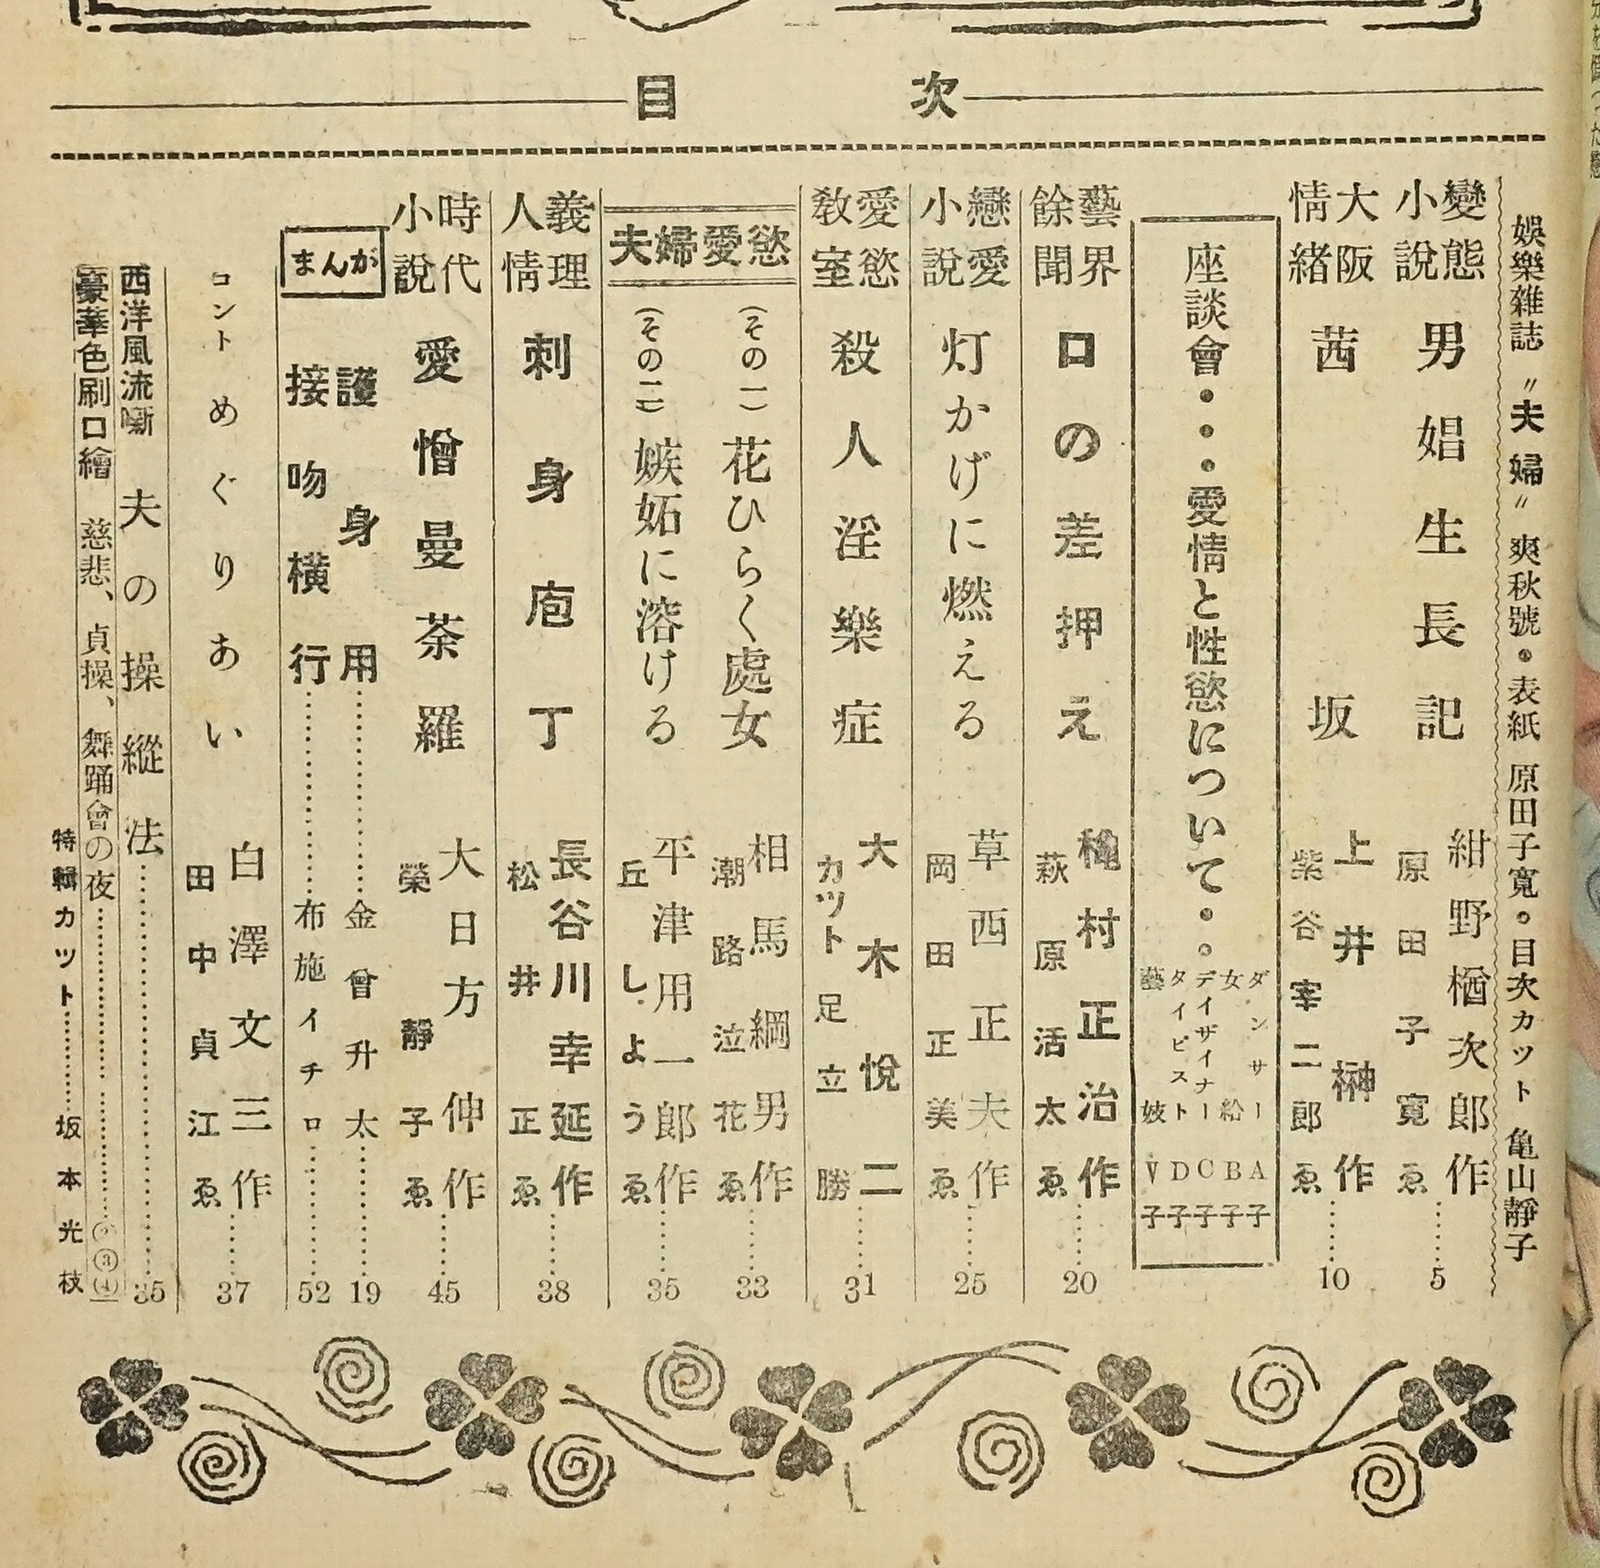 目次
娯樂雜誌〃夫婦〃爽秋號・表紙 原田子寛・目次カット 亀山靜子
變態小説 男娼生長記 紺野楢次郎作 原田子寛ゑ……5
大阪情緒 茜坂 上井榊作 紫谷宰二郎ゑ……10
座談會・・・愛情と性慾について・・
ダンサー A子
女給 B子
デイザイナー C子
タイピスト D子
藝妓 V子
藝界餘聞 口の差押え 村正治作 萩原活太ゑ……20
戀愛小說 灯かげに燃える 草西正夫作 岡田正美ゑ……25
愛慾教室 殺人淫樂症 大木悅二 カット足立勝……31
慾愛婦夫
(その一) 花ひらく處女 相馬綱男作 潮路泣花ゑ……33
(その二) 嫉妬に溶ける 平津用一郎作 丘しようゑ……35
義理人情 刺身庖丁 長谷川幸延作 松井正ゑ……38
時代小說 愛憎曼荼羅 大日方仲作 榮靜子ゑ……45
まんが
護身用……金曾升太……19
接吻横行……布施イチロ……52
コント めぐりあい 白澤文三作 田中貞江ゑ……37
西洋風流噺 夫の操縦法……35
豪華色刷口繪 慈悲、貞操、舞踊會の夜……③④
特輯カット……坂本光枝